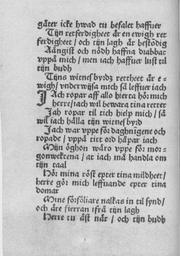 gäter icke hwad tu befalet haffuer
Tijn retferdigheet är en ewigh ret
ferdigheet / och tijn lagh är bestödig
Aångist och nödh haffua drabbat
vppå mich / men iach haffuer lust til
tijn budh
Tijns witnesbyrdz rettheet är e-
wigh / vnderwijsa mich så leffuer iach
Jach ropar aff alla hierta hör mich
herre / iach wil bewara tina retter
Jah ropar til tich help mich / så
wil iach hålla tijn witnesbyrd
Jach war vppe för daghningene och
ropade / vppå titt ord håpar iach
Mijn öghon wåro vppe för mor-
gonwektena / at iach må handla om
tijn taal
Hör mina röst epter tina mildheet /
herre gör mich leffuiande epter tina
domar
Mine förföliare nalkas in til synd /
och äre fierran ifrå tijn lagh
Herre tu äst när / och tijn budh